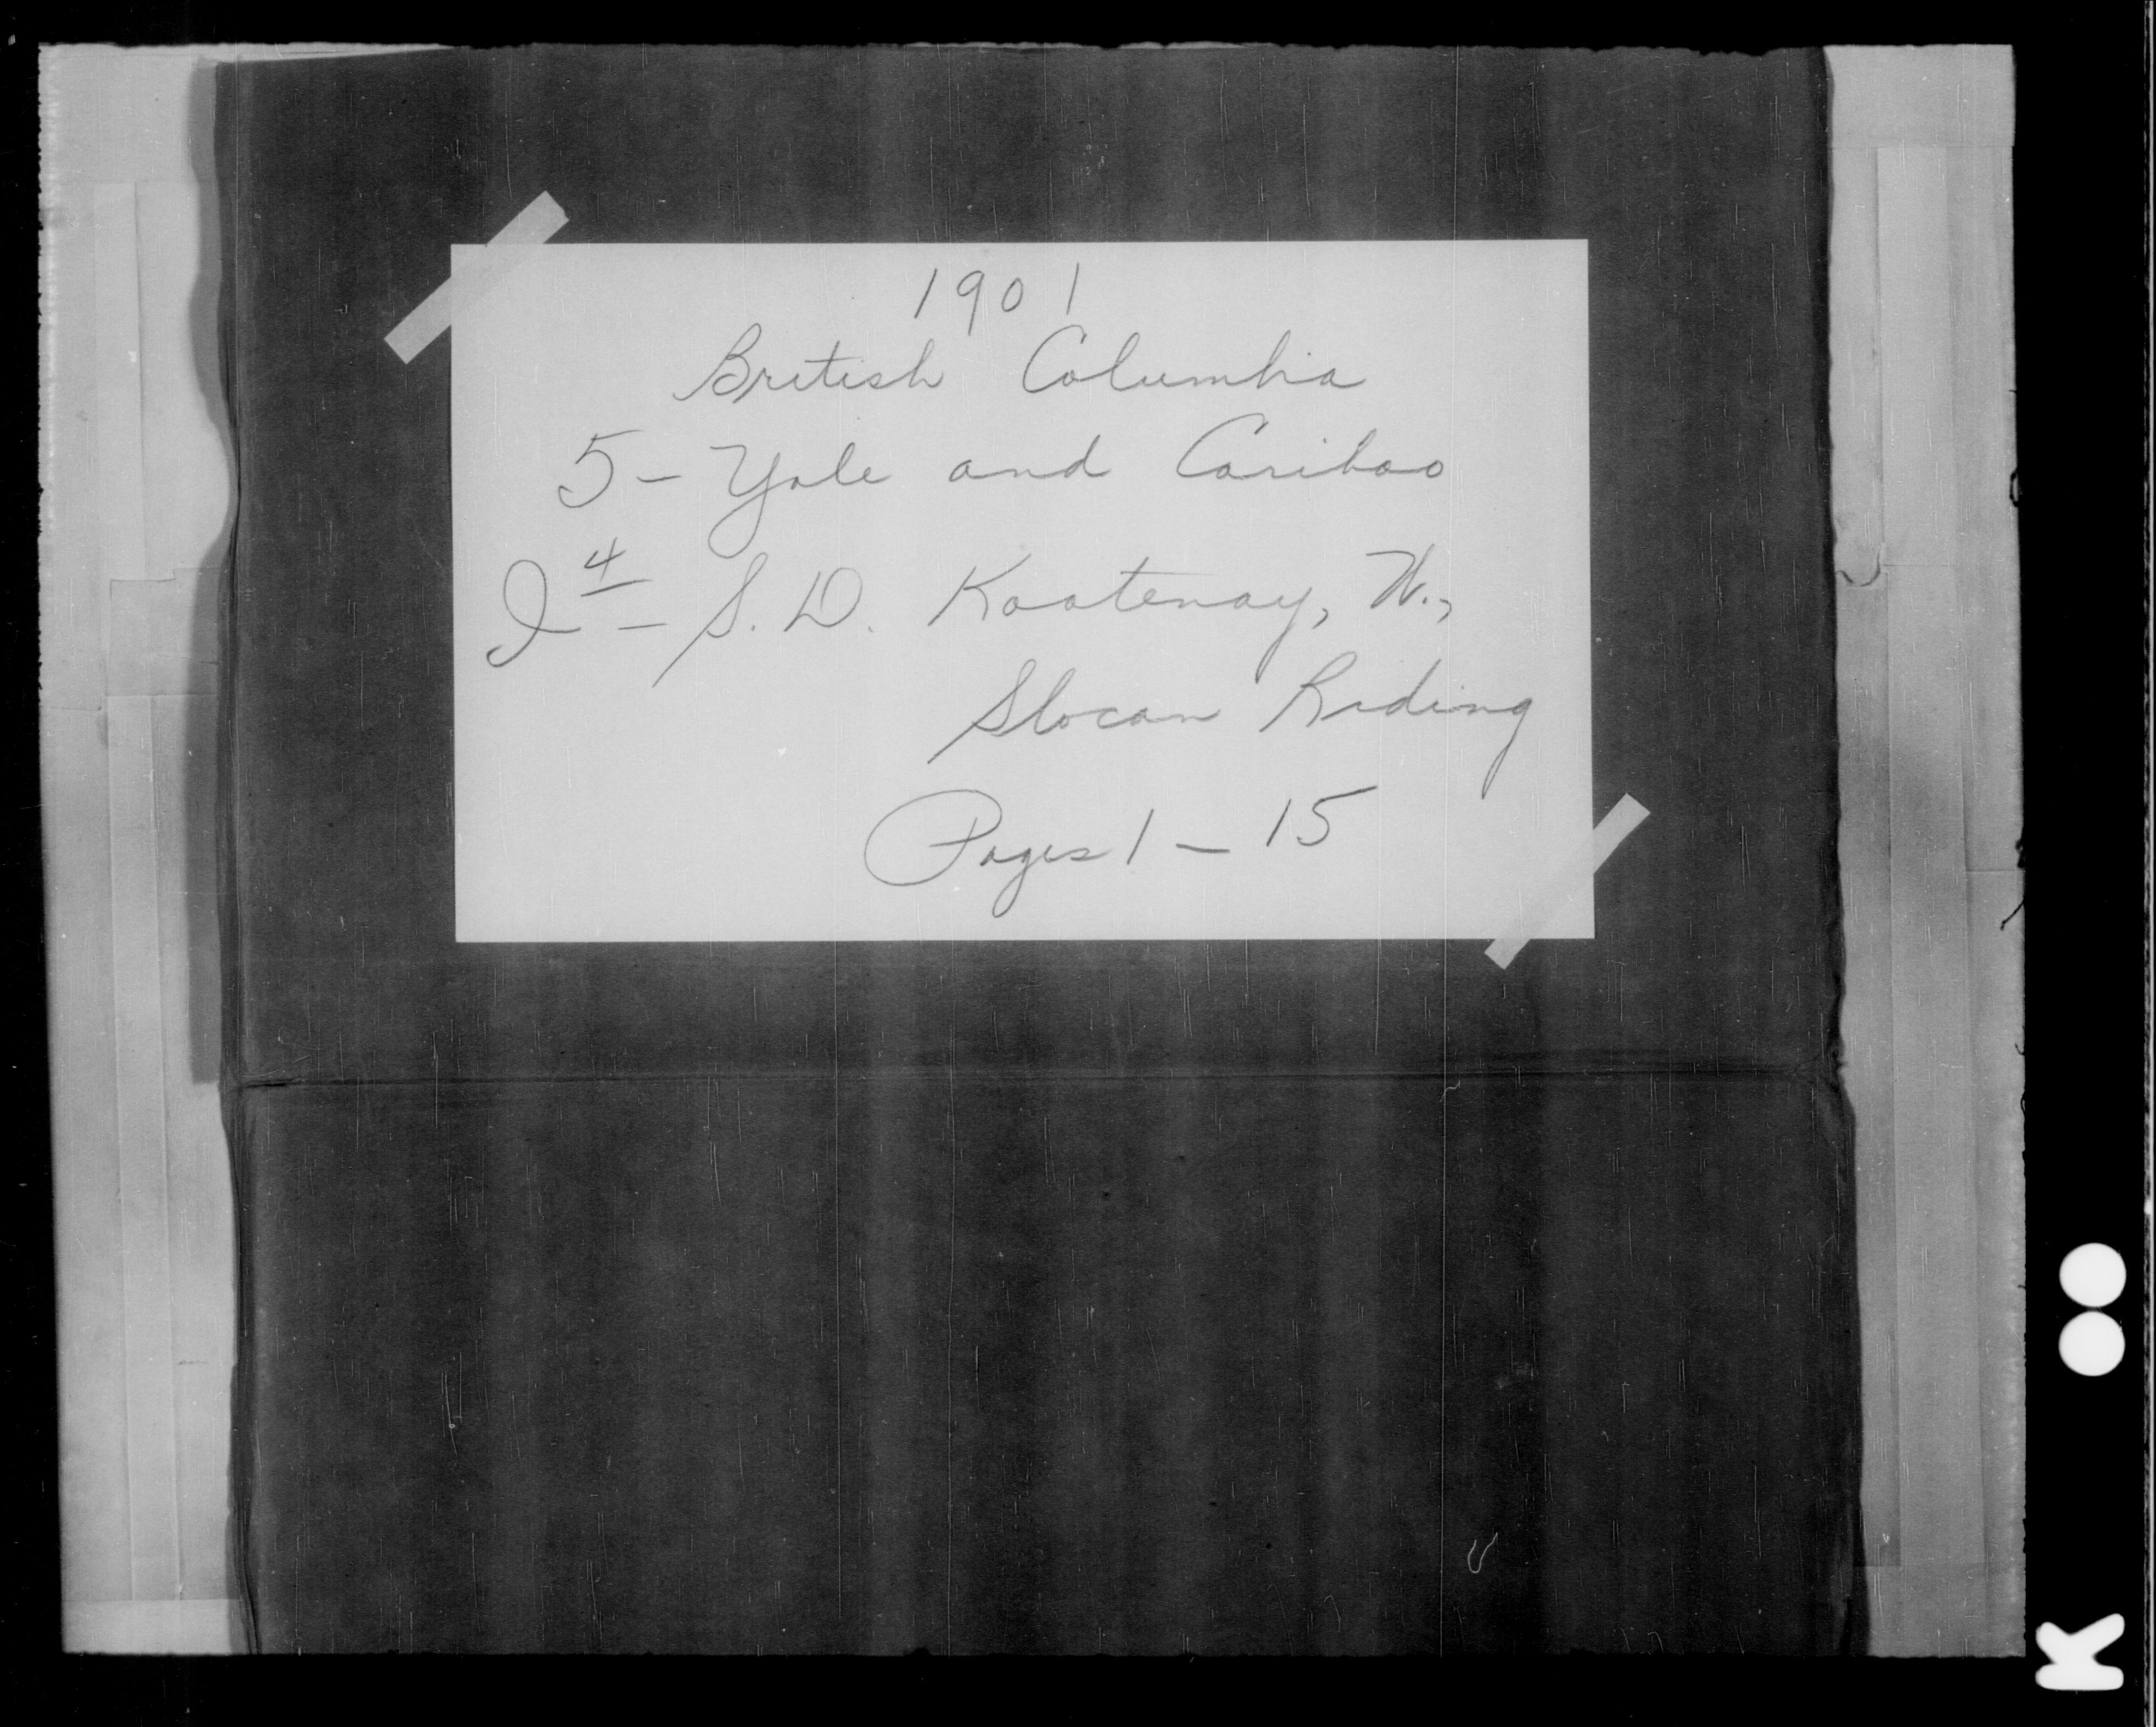 1901
British Columbia
5 - Yale and Cariboo
I 4 - S. D. Kootenay, W.,
Slocan Riding
Pages 1 - 15
K